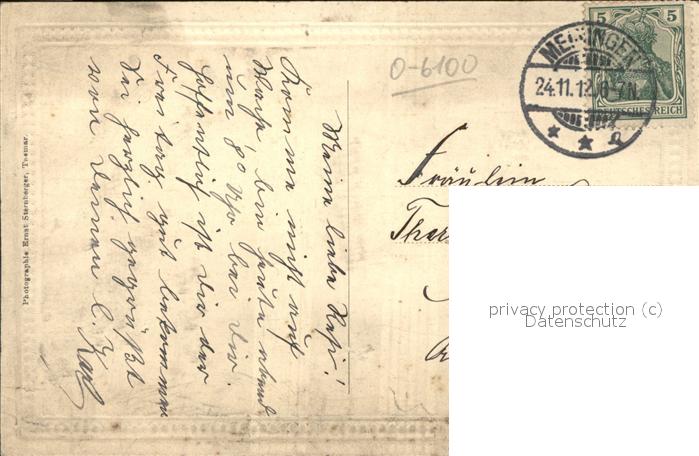 Meine liebe Resi!
Komme nicht auf
Wache, bin heute abend
um 8° Uhr bei Dir.
Hoffentlich ist Dir der
Freitag gut bekommen
Sei herzlich gegrüßt
von Deinem l. Karl
Photographie Ernst Sternberger, Themar.
O-6100
MEININGEN
24.11.12. 6-7N.
* * a
5 5
DEUTSCHES REICH
Fräulein
privacy protection (c)
Datenschutz